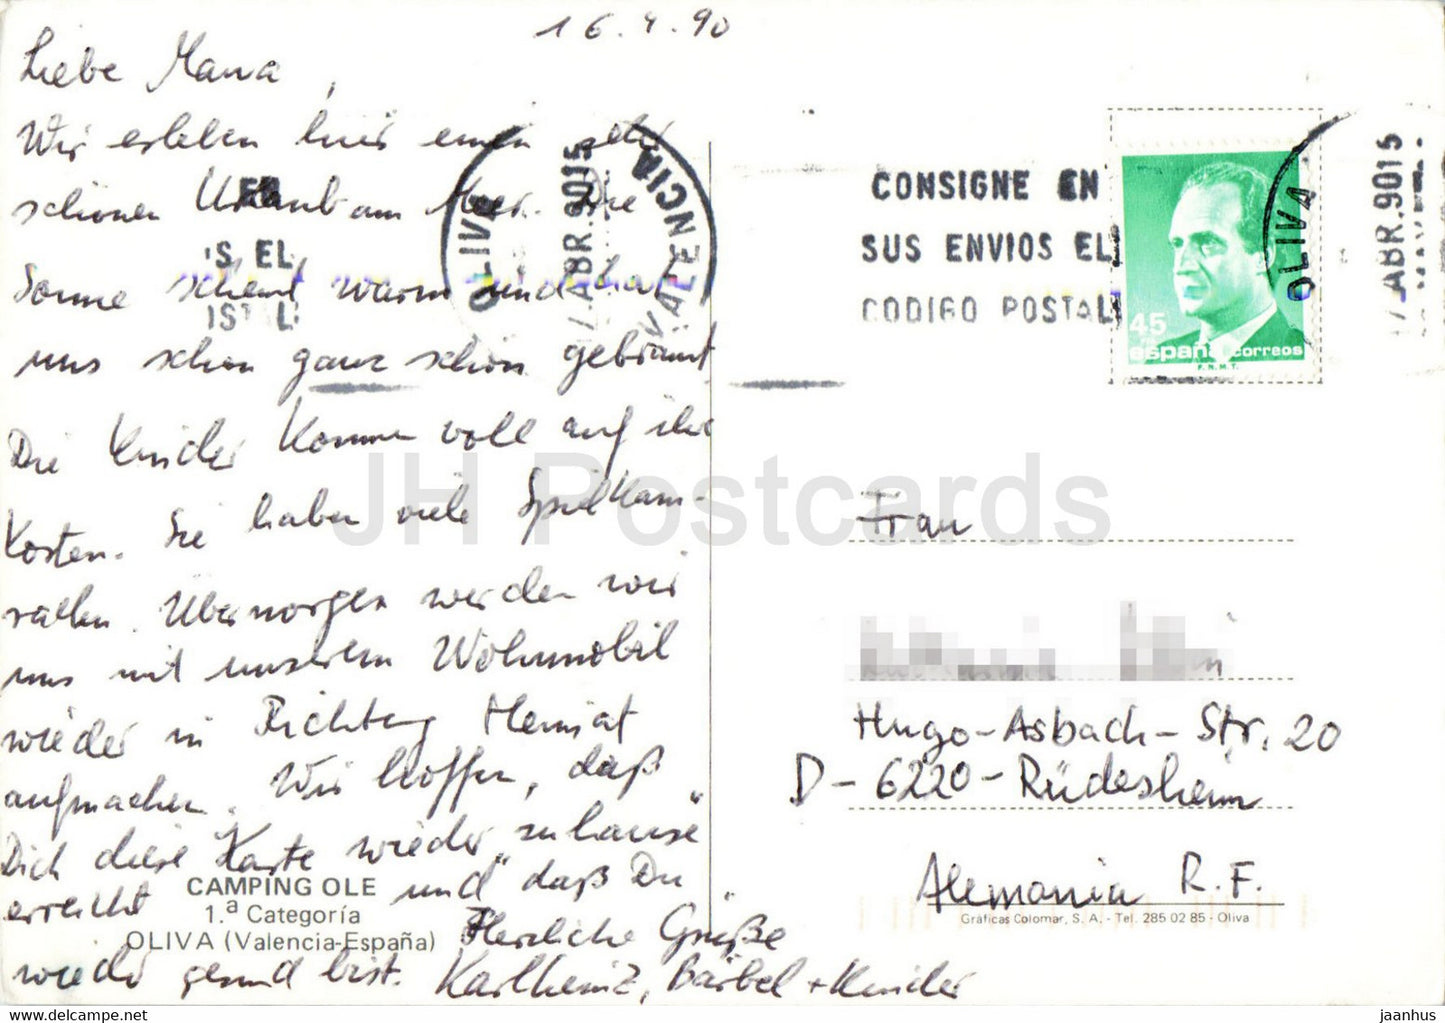 16.4.90
Liebe Mama,
Wir erleben hier einen sehr
schönen Urlaub am Meer. Die
Sonne scheint warm und hat
uns schon ganz schön gebräunt
Die Kinder kommen voll auf ihre
Kosten. Sie haben viele Spielkame-
raden. Übermorgen werden wir
uns mit unserem Wohnmobil
wieder in Richtung Heimat
aufmachen. Wir hoffen, daß
Dich diese Karte wieder "zu hause"
erreicht und daß Du
wieder gesund bist.
Herzliche Grüße
Karlheinz, Bärbel + Kinder
CAMPING OLE
1.ª Categoría
OLIVA (Valencia-España)
IS EL
OLIVA
ABR.9015
VALENCIA
CONSIGNE EN
SUS ENVIOS EL
CODIGO POSTAL
45
españa correos
F.N.M.T.
OLIVA
ABR.9015
Frau
Hugo-Asbach-Str. 20
D-6220-Rüdesheim
Alemania R.F.
Gráficas Colomar, S. A. - Tel. 285 02 85 - Oliva
JH Postcards
jaanhus